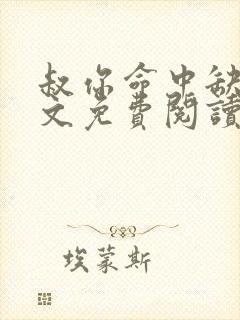 叔你命中缺
文免費閱讀
埃蒙斯